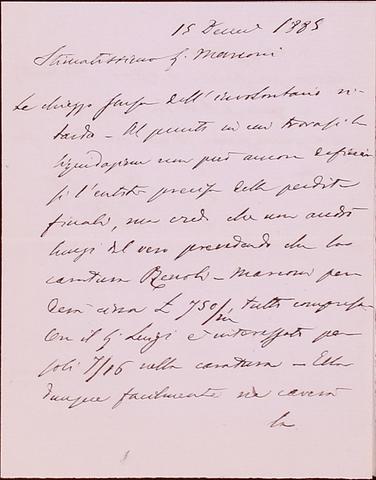 15 Decem. 1885
Stimatissimo S. Marconi
Le chieggo scusa dell'involontario ri-
tardo — Al punto in cui trovasi la
liquidazione non può ancora definir-
si l'entità precisa della perdita
finale, ma credo che non andrò
lungi dal vero prevedendo che la
caratura Renoli - Marconi per
derà circa £ 750/m tutto compreso
Or il S. Luigi è interessato per
soli 7/16 nella caratura — Ella
dunque facilmente ne caverà
la